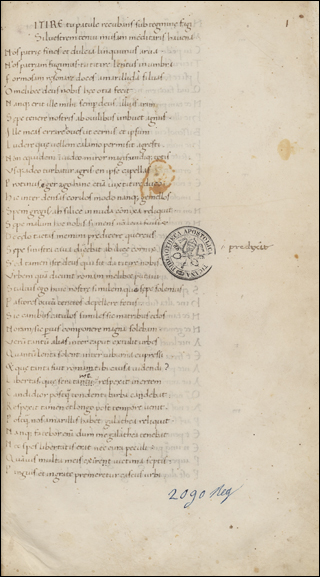 1
ITIRE tu patule recubans sub tegmine fagi
Siluestrem tenui musam meditaris hauena
Nos patrie fines et dulcia linquimus arua
Nos patriam fugimus tu titire lentus in umbra
Formosam resonare doces amarillida siluas
O melibee deus nobis hec otia fecit
Namque erit ille mihi semper deus illius aram
Sepe tener nostris ab ouilibus imbuet agnus
Ille meas errare boues ut cernis et ipsum
Ludere que uellem calamo permisit agresti
Non equidem inuideo miror magis undique totis
Usque adeo turbatur agris en ipse capellas
Protinus eger ago hanc etiam uix titire duco
Hic inter densas corulos modo namque gemellos
Spem gregis ab silice in nuda conixa reliquit
Sepe malum hoc nobis si mens non leua fuisset
De celo tactas memini predicere quercus
predixit
Sepe sinistra caua dicebat ab ilice cornix
Sed tamen iste deus qui sit da titire nobis
Urbem quam dicunt romam melibee putaui
Stultus ego huic nostre similem quo sepe solemus
Pastores ouium teneros depellere fetus
Sic canibus catulos similes sic matribus edos
Noram sic paruis componere magna solebam
Verum tantum alias inter caput extulit urbes
Quantum lenta solent inter uiburna cupressi
Et que tanta fuit romam tibi causa uidendi?
Libertas que sera tamen respexit inertem
Candidior postquam tondenti barba cadebat
Respexit tamen et longo post tempore uenit
Postquam nos amarillis habet galathea reliquit
Namque fatebor enim dum me galathea tenebat
Nec spes libertatis erat nec cura peculi
Quamuis multa meis exiret uictima septis
Pinguis et ingrate premeretur caseus urbi
BIBLIOTHECA APOSTOLICA VATICANA
2090 Reg